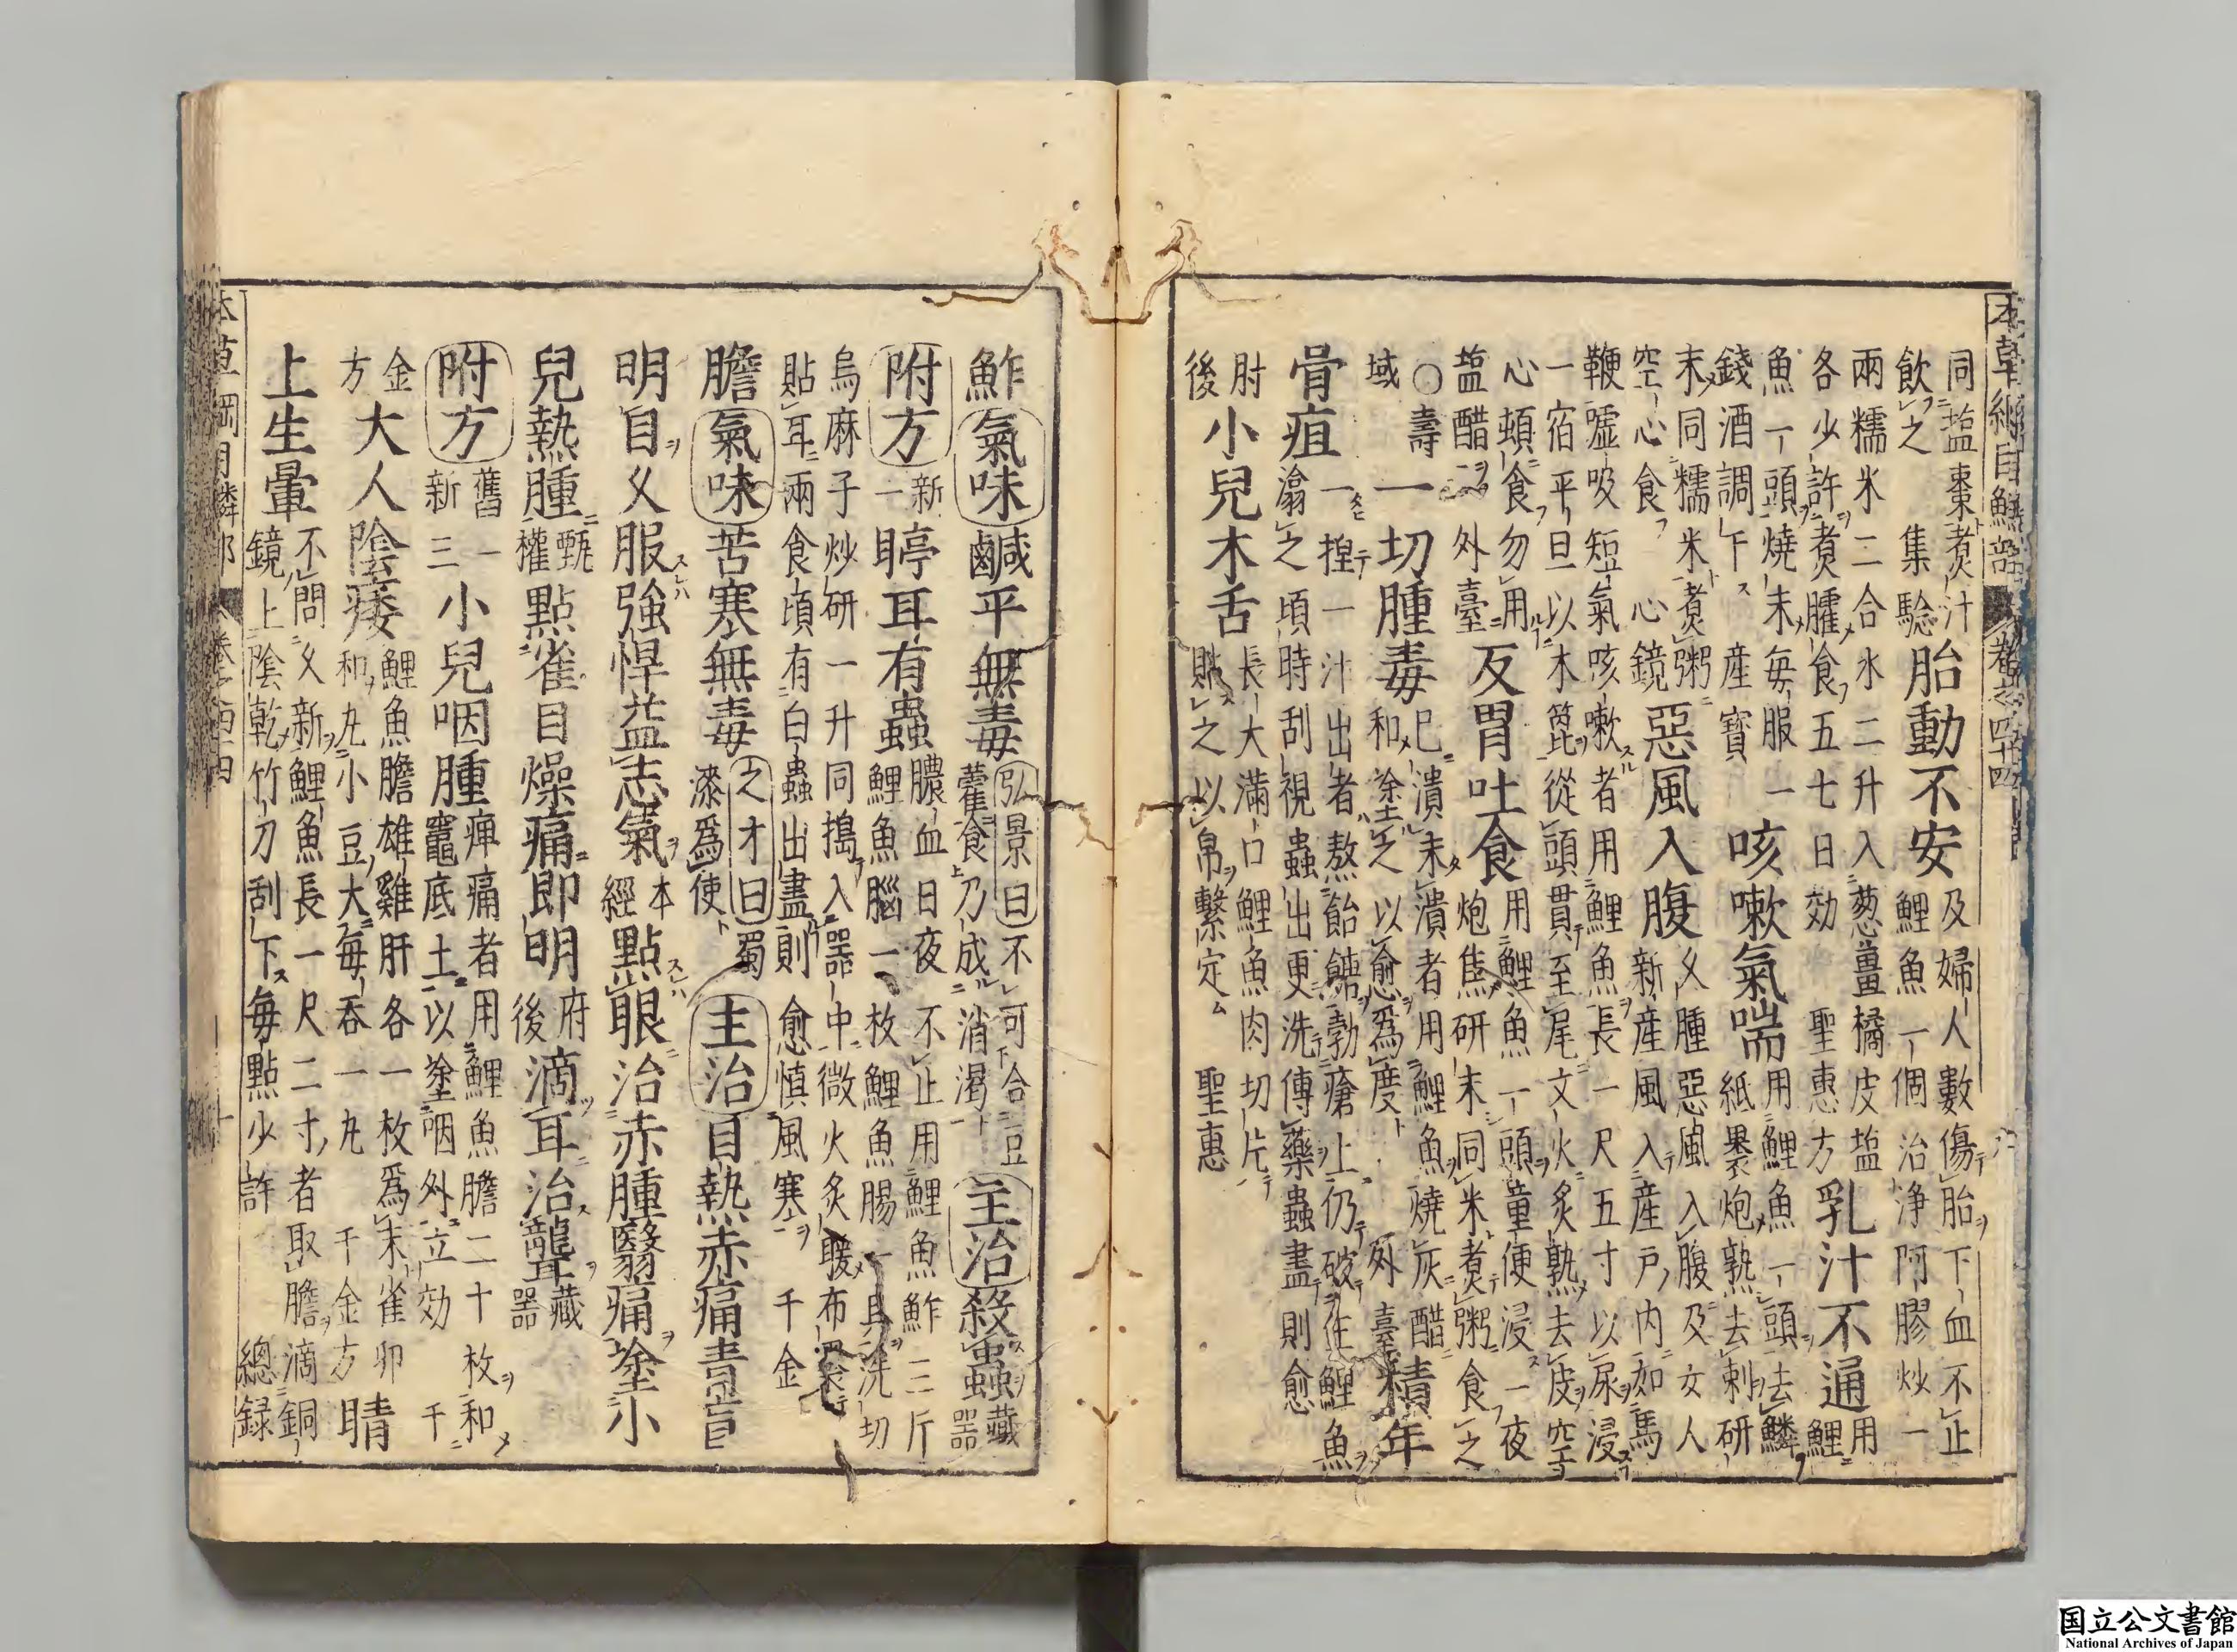 本草綱目鱗部 卷之四十四
同塩棗煮汁飲之 集驗 胎動不安 及婦人數傷胎下血不止鯉魚一個治浄阿膠炒一
兩糯米二合水二升入葱薑橘皮塩各少許煮臛食五七日効 聖惠方 乳汁不通 用鯉
魚一頭燒末毎服一錢酒調下 產寶 咳嗽氣喘 用鯉魚一頭去鱗紙裹炮熟去刺研
末同糯米煮粥空心食 心鏡 惡風入腹 久腫惡風入腹及女人新產風入產戶内如馬
鞭嘘吸短氣咳嗽者用鯉魚長一尺五寸以尿浸一宿平旦以木篦從頭貫至尾文火炙熟去皮空
心頓食勿用塩醋 外臺 反胃吐食 用鯉魚一頭童便浸一夜炮焦研末同米煮粥食之
○壽域 一切腫毒 已潰未潰者用鯉魚燒灰醋和塗之以愈爲度 外臺 積年
骨疽 一捏一汁出者熬飴餹勃瘡上仍破生鯉魚㵧之頃時刮視蟲出更洗傅藥蟲盡則愈
肘後 小兒木舌 長大滿口鯉魚肉切片貼之以帛繫定 聖惠
鮓 氣味 鹹平無毒 弘景曰不可合豆藿食乃成消渴 主治 殺蟲 藏器
附方 新一 聤耳有蟲 膿血日夜不止用鯉魚鮓三斤鯉魚腦一枚鯉魚腸一具洗切
烏麻子炒研一升同搗入器中微火炙暖布裹貼耳兩食頃有白蟲出盡則愈慎風寒 千金
膽 氣味 苦寒無毒 之才曰蜀漆爲使 主治 目熱赤痛青盲
明目久服強悍益志氣 本經 點眼治赤腫翳痛塗小
兒熱腫 甄權 點雀目燥痛即明 後府 滴耳治聾 藏器
附方 舊一新三 小兒咽腫 痺痛者用鯉魚膽二十枚和竈底土以塗咽外立効 千
金方 大人陰痿 鯉魚膽雄雞肝各一枚爲末雀卵和丸小豆大毎吞一丸 千金方 睛
上生暈 不問久新鯉魚長一尺二寸者取膽滴銅鏡上陰乾竹刀刮下毎點少許 總録
本草綱目鱗部 卷之四十四 十
国立公文書館
National Archives of Japan